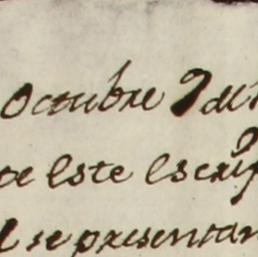 Octubre 9 de
te este escrip
se presentan